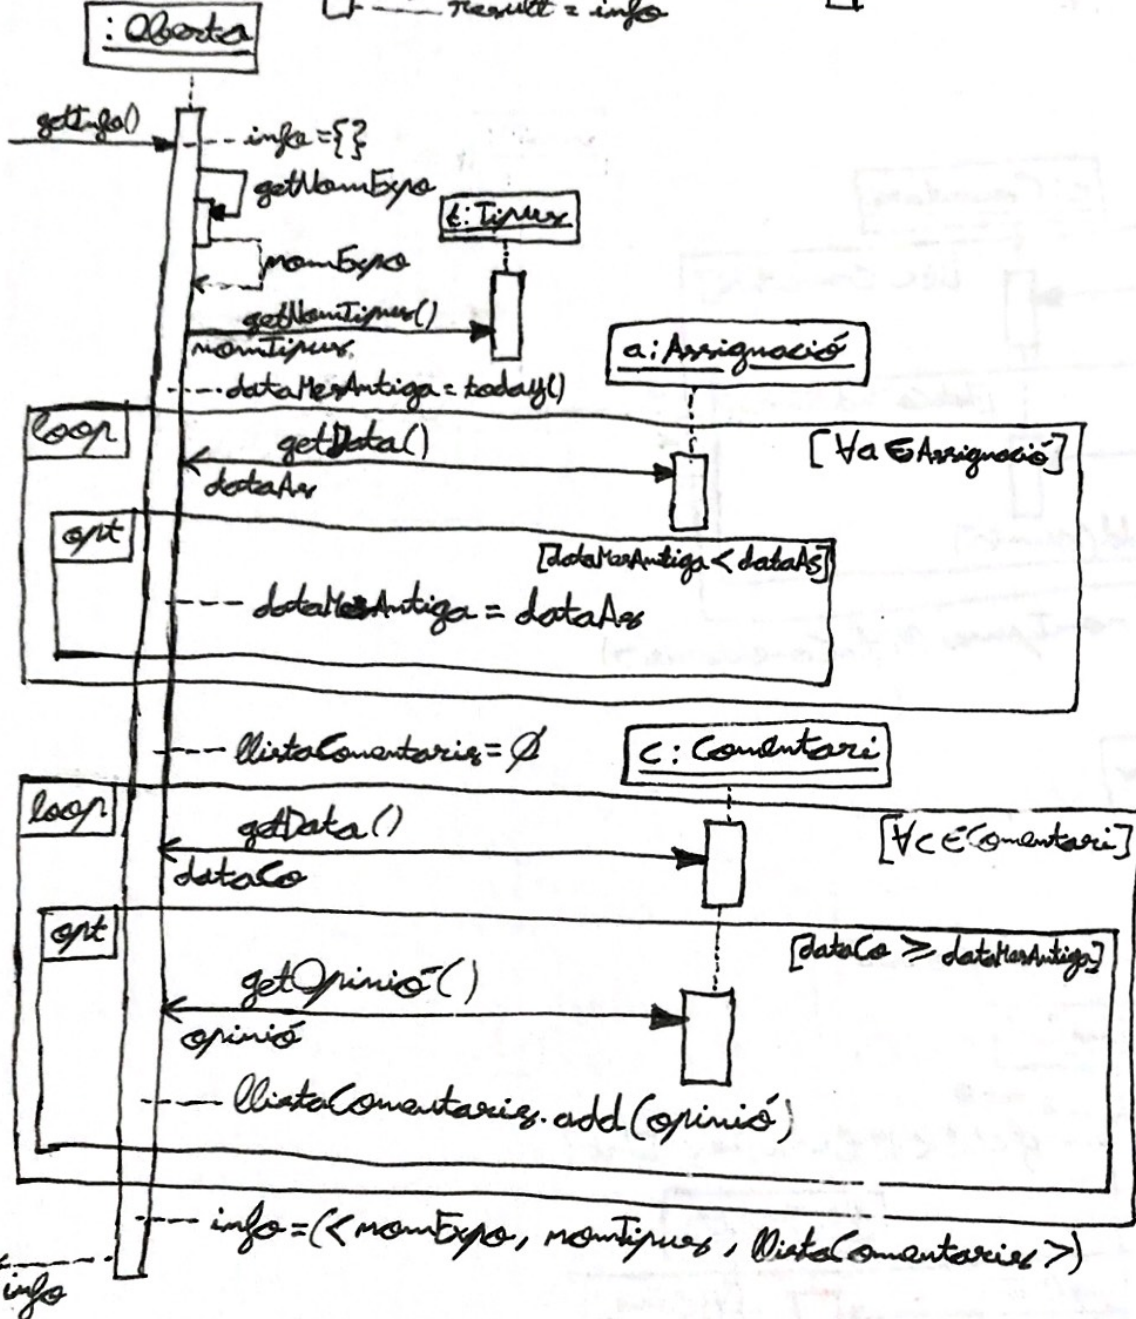 result = info
: Oberta
getInfo()
info = {}
getNomExpo
t: Tipus
nomExpo
getNomTipus()
nomTipus
a: Assignació
dataMesAntiga = today()
loop
getData()
[∀a ∈ Assignació]
dataAs
opt
[dataMesAntiga < dataAs]
dataMesAntiga = dataAs
llistaComentaris = ∅
c: Comentari
loop
getData()
[∀c ∈ Comentari]
dataCo
opt
[dataCo ≥ dataMesAntiga]
getOpinió()
opinió
llistaComentaris.add(opinió)
info = (<nomExpo, nomTipus, llistaComentaris>)
info